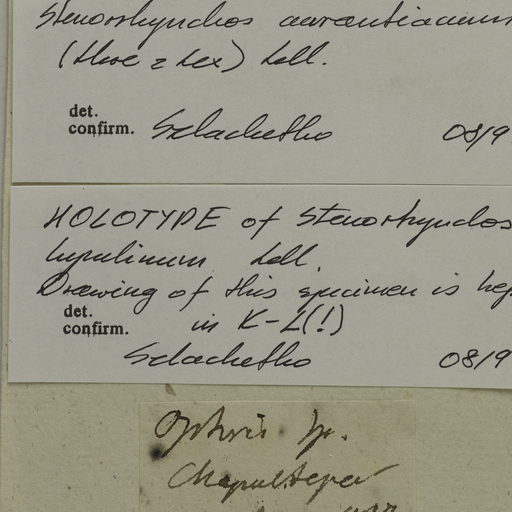 Stenorrhynchos aurantiacum
(Llave & Lex) Ldl.
det.
confirm. Szlachetko 08/9
HOLOTYPE of Stenorhynchos
lupulinum Ldl.
Drawing of this specimen is kep
det.
confirm. in K-L(!)
Szlachetko 08/9
Ophris sp.
Chapultepec